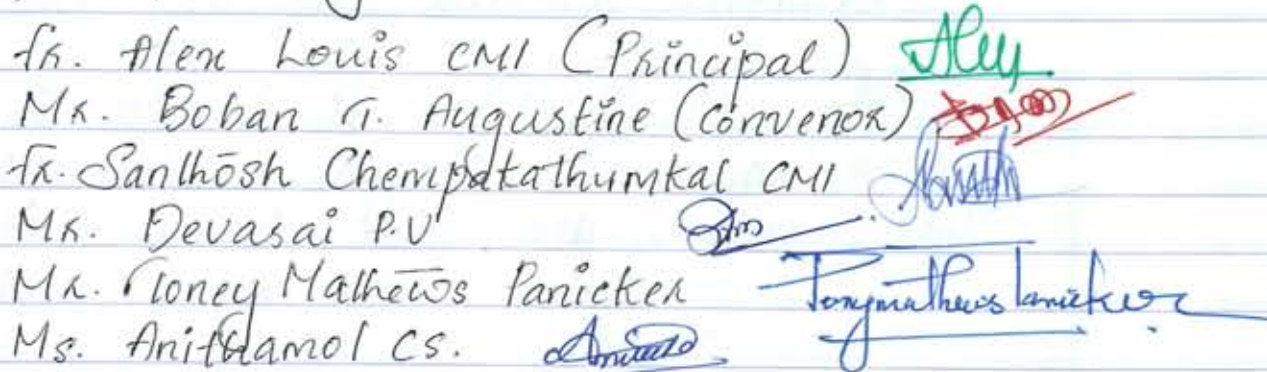 Fr. Alex Louis CMI (Principal) Alex
Mr. Boban T. Augustine (Convenor)
Fr. Santhosh Chempakathumkal CMI
Mr. Devasai P.V
Mr. Toney Mathews Panicker Tonymathews Panicker
Ms. Anithamol CS.